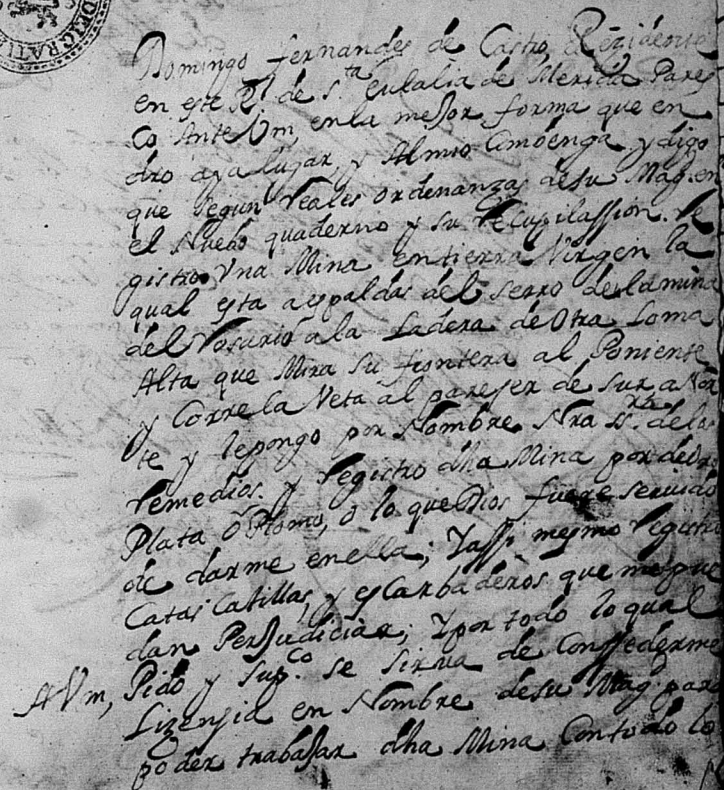 DEI GRATIA
Domingo fernandes de Castro Rezidente
en este Rl. de Sta. Eulalia de Merida Pares
Co Ante Vm, en la mejor forma que en
dro aya lugar, y Al mio Combenga, y digo
que Segun Reales Ordenanzas de su Mag. en
el Nuebo quaderno y su Recupilassion. Re
gistro Vna Mina en tierra Virgen la
qual esta a espaldas del serro de la mina
del Rosario a la Ladera de Otra Loma
Alta que Mira su frontera al Poniente
y Corre la Veta al pareser de sur a Nor
te y le pongo por Nombre Nra Sra. de los
remedios. y Registro dha Mina por de Oro
Plata o Plomo, o lo que Dios fuere servido
de darme en ella; Y assi mesmo Registro
Catas Catillas, y escarbaderos que me pue
dan Perjudiciar; Y por todo lo qual
A Vm, Pido y Supco. se sirua de Conssederme
Lizensia en Nombre de su Mag. para
poder trabajar dha Mina Con todo lo